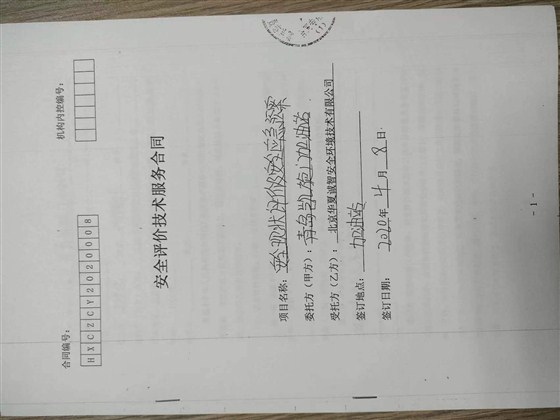 合同编号：
HXCZCY2020008
机构内控编号：
安全评价技术服务合同
项目名称：安全现状评价及安全应急预案
委托方（甲方）：青岛凯施门加油站
受托方（乙方）：北京华夏诚智安全环境技术有限公司
签订地点：加油站
签订日期：2020年4月8日
- 1 -